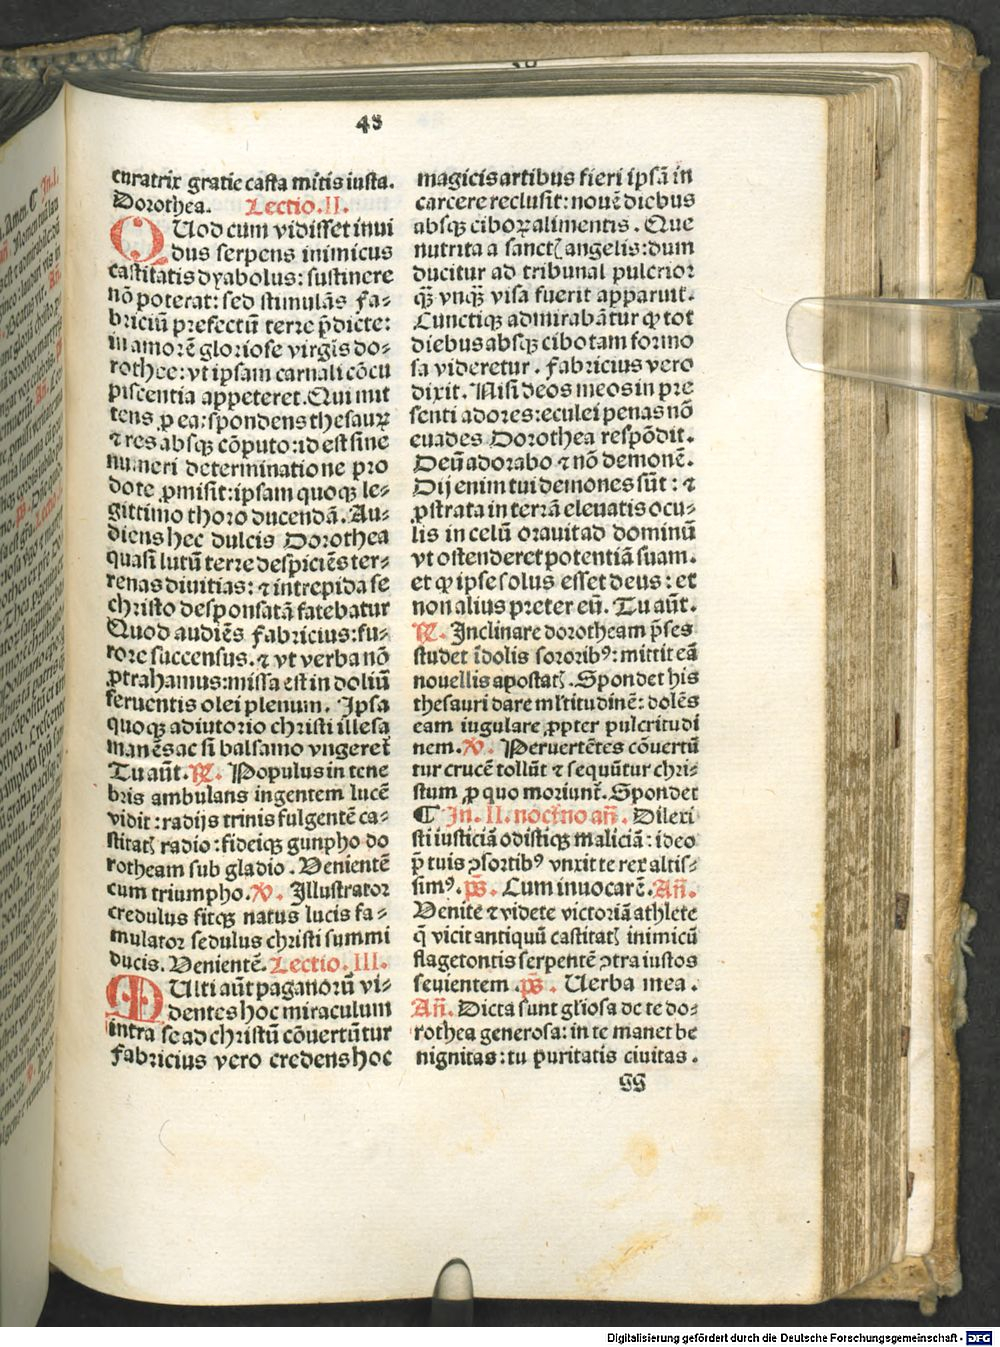 48
curatrix gratie casta mitis iusta.
Dorothea. Lectio. II.
QUod cum vidisset inui
dus serpens inimicus
castitatis dyabolus: sustinere
nō poterat: sed stimulās fa⸗
briciū prefectū terre p̄dicte:
in amorē gloriose virgīs do⸗
rothee: vt ipsam carnali cōcu
piscentia appeteret. Qui mit
tens ꝓ ea: spondens thesauꝝ
⁊ res absqꝫ cōputo: id est sine
numeri determinatione pro
dote ꝓmisit: ipsam quoqꝫ le⸗
gittimo thoro ducendā. Au⸗
diens hec dulcis Dorothea
quasi lutū terre despiciēs ter⸗
renas diuitias: ⁊ intrepida se
christo desponsatā fatebatur
Quod audiēs fabricius: fu⸗
rore succensus. ⁊ vt verba nō
ꝓtrahamus: missa est in doliū
feruentis olei plenum. Ipsa
quoqꝫ adiutorio christi illesa
manēs ac si balsamo vngeret᷑
Tu aūt. ℟. Populus in tene
bris ambulans ingentem lucē
vidit: radijs trinis fulgentē ca⸗
stitatꝭ radio: fideiqꝫ gunpho do
rotheam sub gladio. Venientē
cum triumpho. ℣. Illustrator
credulus fitqꝫ natus lucis fa⸗
mulator sedulus christi summi
ducis. Venientē. Lectio. III.
MUlti aūt paganorū vi⸗
dentes hoc miraculum
intra se ad christū cōuertūtur
Fabricius vero credens hoc
magicis artibus fieri ipsā in
carcere reclusit: nouē diebus
absqꝫ ciboꝝ alimentis. Que
nutrita a sanctꝭ angelis: dum
ducitur ad tribunal pulcrior
qꝫ̄ vnqꝫ̄ visa fuerit apparuit.
Cunctiqꝫ admirabātur ꝙ tot
diebus absqꝫ cibo tam formo
sa videretur. Fabricius vero
dixit. Nisi deos meos in pre
senti adores: eculei penas nō
euades Dorothea respōdit.
Deū adorabo ⁊ nō demonē.
Dij enim tui demones sūt: ⁊
ꝓstrata in terrā eleuatis ocu⸗
lis in celū orauit ad dominū
vt ostenderet potentiā suam.
et ꝙ ipse solus esset deus: et
non alius preter eū. Tu aūt.
℟. Inclinare dorotheam p̄ses
studet īdolis sororibꝰ: mittit eā
nouellis apostatꝭ. Spondet his
thesauri dare ml̄titudinē: dolēs
eam iugulare ꝓpter pulcritudi
nem. ℣. Peruertētes cōuertū
tur crucē tollūt ⁊ sequūtur chri⸗
stum ꝓ quo moriunt᷑. Spondet
¶ In. II. noct̄no an̄. Dilexi
sti iusticiā odistiqꝫ maliciā: ideo
p̄ tuis ꝯsortibꝰ vnxit te rex altis⸗
simꝰ. ps̄. Cum inuocarē. An̄.
Venite ⁊ videte victoriā athlete
q̄ vicit antiquū castitatꝭ inimicū
flagetontis serpentē ꝯtra iustos
seuientem. ps̄. Uerba mea.
An̄. Dicta sunt gl̄iosa de te do⸗
rothea generosa: in te manet be
nignitas: tu puritatis ciuitas.
gg
Digitalisierung gefördert durch die Deutsche Forschungsgemeinschaft - DFG